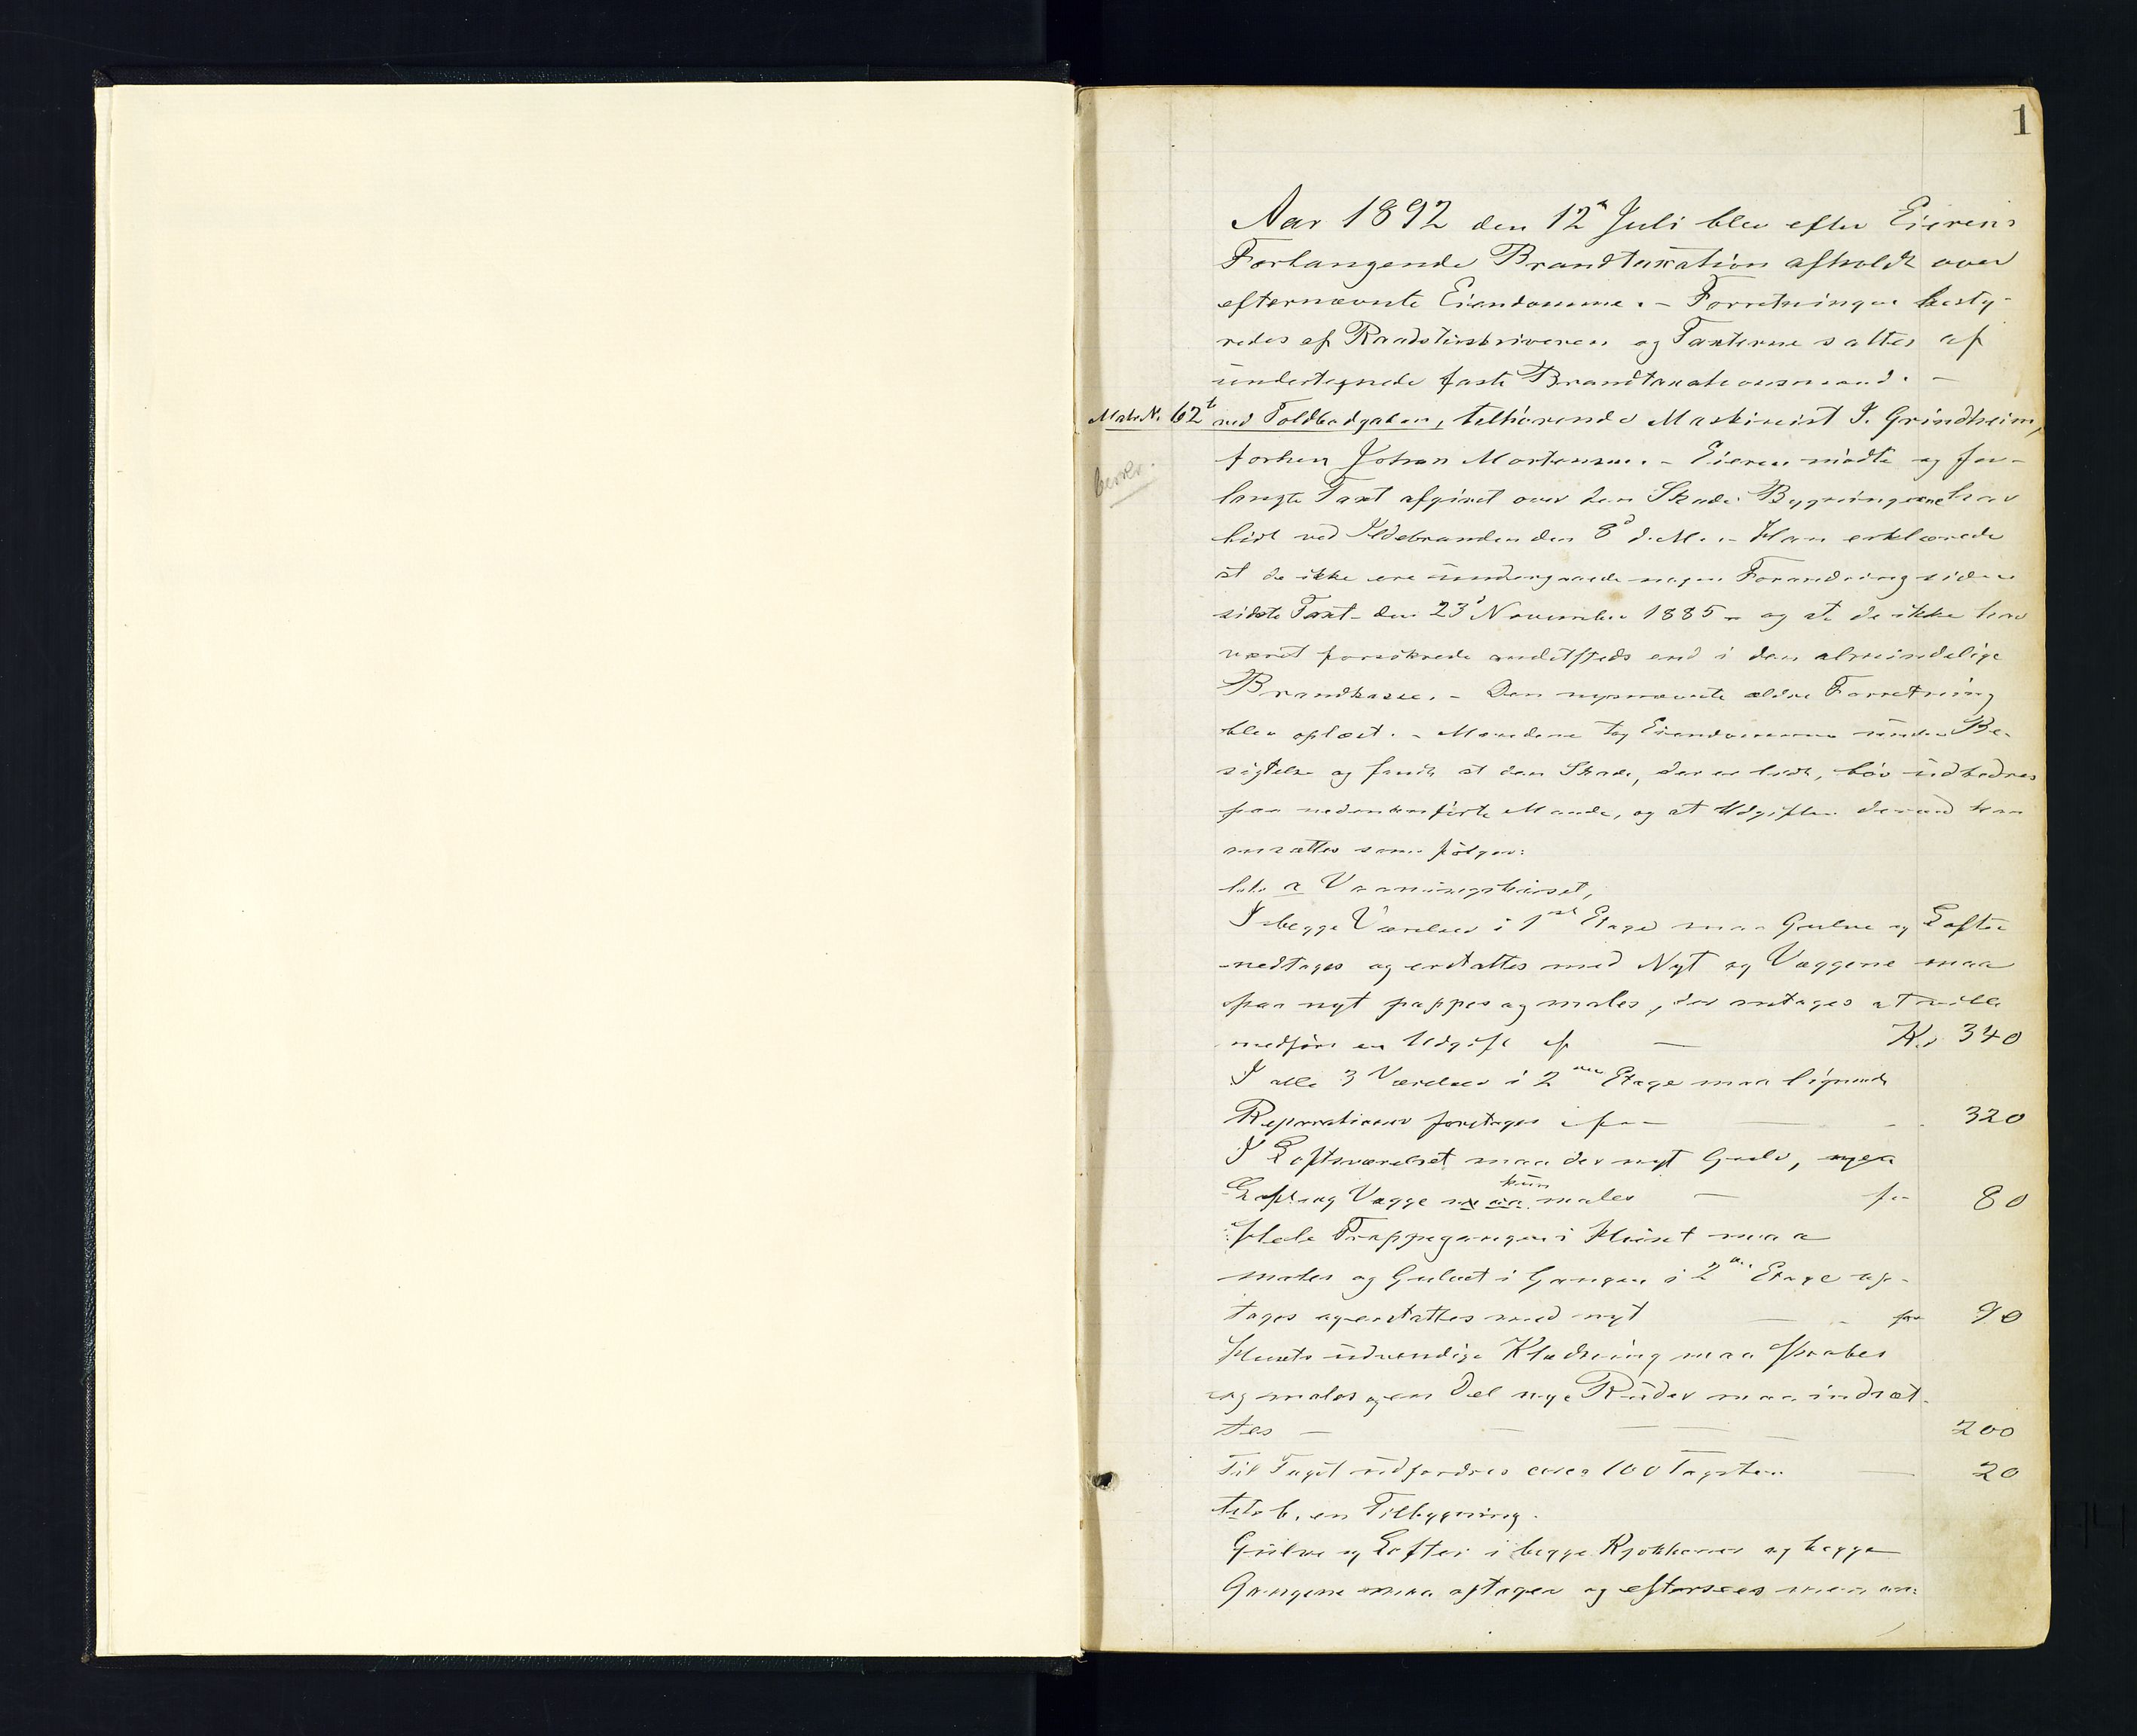 1
Aar 1892 den 12te Juli blev efter Eierens
Forlangende Brandtaxation afholdt over
efternævnte Eiendomme. – Forretningen besty-
redes af Raadstueskriveren og Taxterne sattes af
undertegnede faste Brandtaxationsmænd. –
Matr. N. 62b ved Toldbodgaden, tilhørende Maskinist J. Grindheim,
forhen Johan Mortensen. – Eieren mødte og for-
beskr.
langte Taxt afgivet over den Skade Bygningerne har
lidt ved Ildebranden den 8d d. M. – Han erklærede
at de ikke ere undergaaede nogen Forandring siden
sidste Taxt den 23d November 1885 – og at de ikke har
været forsikrede andetsteds end i den almindelige
Brandkasse. – Den nysnævnte ældre Forretning
blev oplæst. – Mændene tog Eiendommen under Be-
sigtelse og fandt at den Skade, der er lidt, bør udbedres
paa nedenanførte Maade, og at Udgiften derved kan
ansættes som følger:
Litr. a Vaaningshuset,
I begge Værelser i 1ste Etage maa Gulve og Lofter
nedtages og erstattes med Nyt og Væggene maa
paa nyt pappes og males, der antages at ville
medføre en Udgift af — Kr. 340
I alle 3 Værelser i 2den Etage maa lignende
Reparationer foretages for — 320
I Loftsværelset maa der nyt Gulv, nyea
Loft og Vægge maa kun males — for 80
Hele Trappegangen i Huset maa
males og Gulvet i Gangen i 2den Etage op-
tages og erstattes med nyt — for 90
Husets udvendige Klædning maa skrabes
og males og en Del nye Ruder maa indsæt-
tes — 200
Til Taget udfordres circa 100 Tagsten — 20
Litr. b. en Tilbygning.
Gulve og Lofter i begge Kjøkkener og begge
Gangene maa optages og eftersees men an-